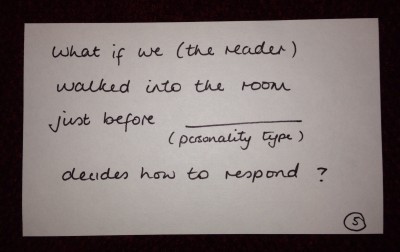 What if we (the reader)
walked into the room
just before ___________
(personality type)
decides how to respond ?
5